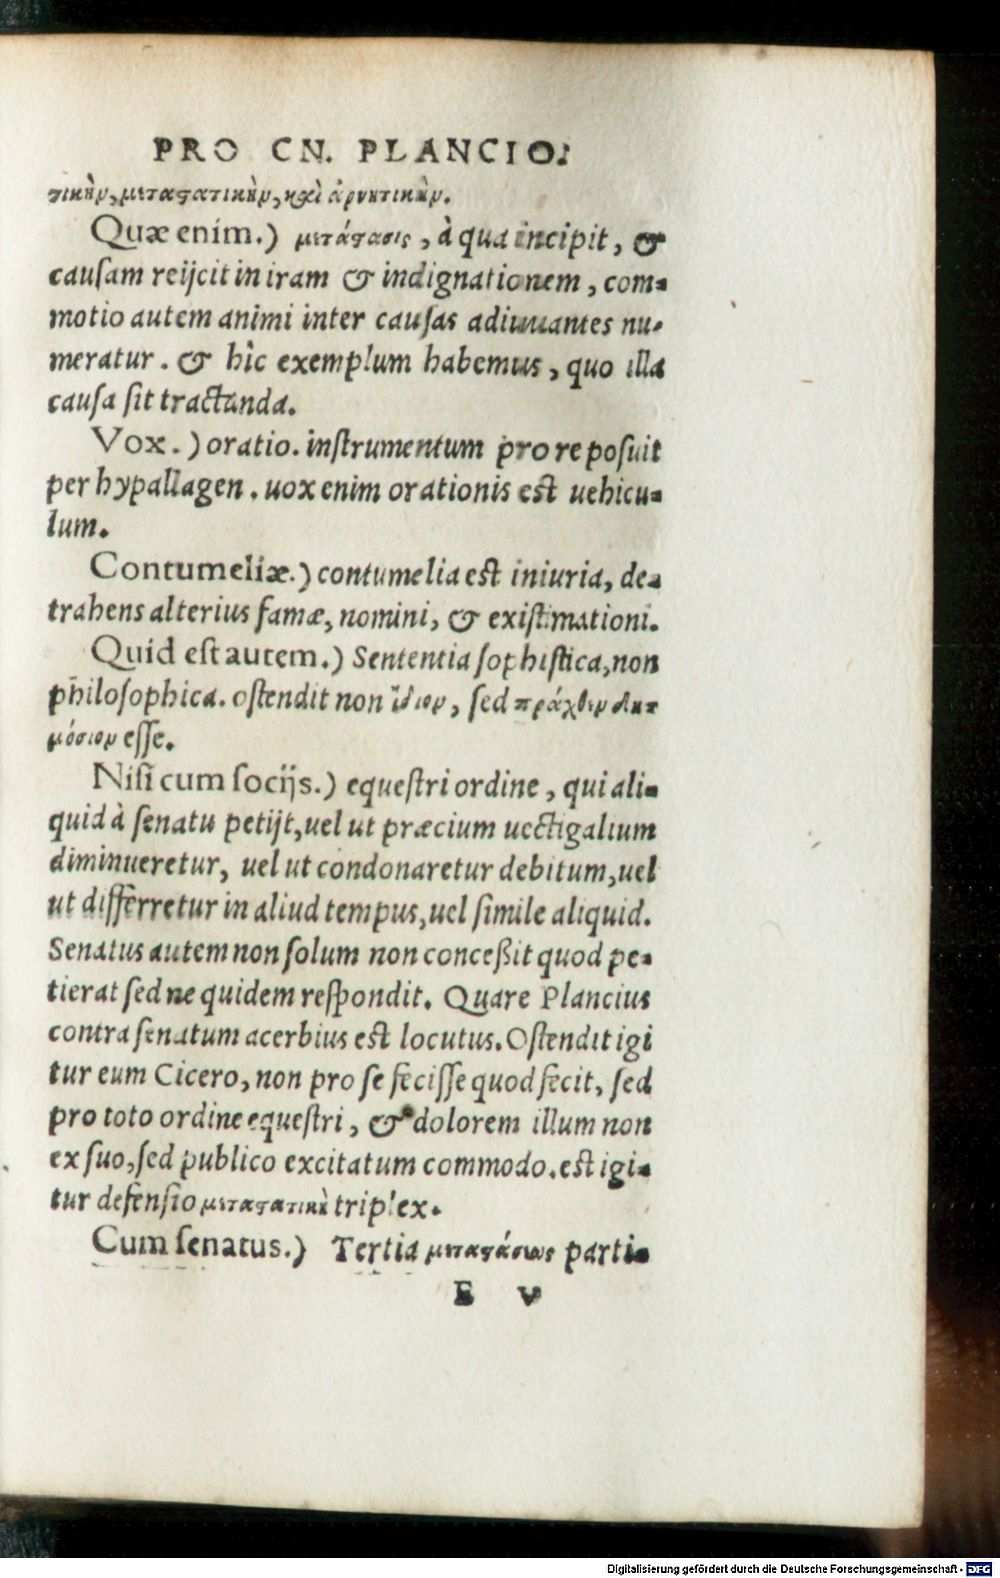 PRO CN. PLANCIO.
τικὴν, μεταστατικὴν, καὶ ἀρνητικὴν.
Quæ enim.) μετάστασις, à qua incipit, &
causam reijcit in iram & indignationem, com-
motio autem animi inter causas adiuuantes nu-
meratur. & hîc exemplum habemus, quo illa
causa sit tractanda.
Vox.) oratio. instrumentum pro re posuit
per hypallagen. uox enim orationis est uehicu-
lum.
Contumeliæ.) contumelia est iniuria, de-
trahens alterius famæ, nomini, & existimationi.
Quid est autem.) Sententia sophistica, non
philosophica. ostendit non ἴδιον, sed
esse.
Nisi cum socijs.) equestri ordine, qui ali-
quid à senatu petijt, uel ut præcium uectigalium
diminueretur, uel ut condonaretur debitum, uel
ut differretur in aliud tempus, uel simile aliquid.
Senatus autem non solum non concessit quod pe-
tierat sed ne quidem respondit. Quare Plancius
contra senatum acerbius est locutus. Ostendit igi
tur eum Cicero, non pro se fecisse quod fecit, sed
pro toto ordine equestri, & dolorem illum non
ex suo, sed publico excitatum commodo. est igi-
tur defensio μεταστατικὴ triplex.
Cum senatus.) Tertia μεταστάσεως parti-
E v
Digitalisierung gefördert durch die Deutsche Forschungsgemeinschaft - DFG